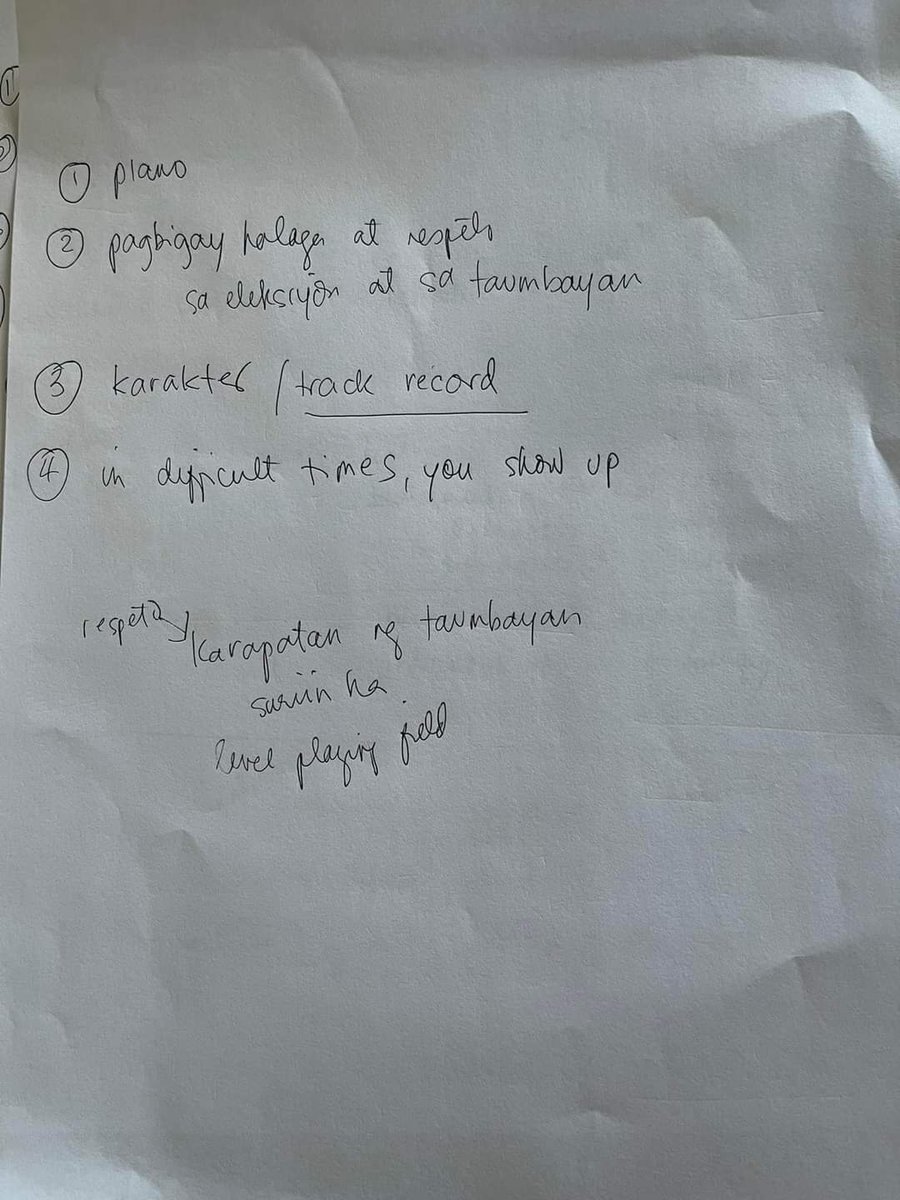 ① plano
② pagbigay halaga at respeto
sa eleksiyon at sa taumbayan
③ karakter / track record
④ in difficult times, you show up
respeto
karapatan ng taumbayan
suriin ka
level playing field